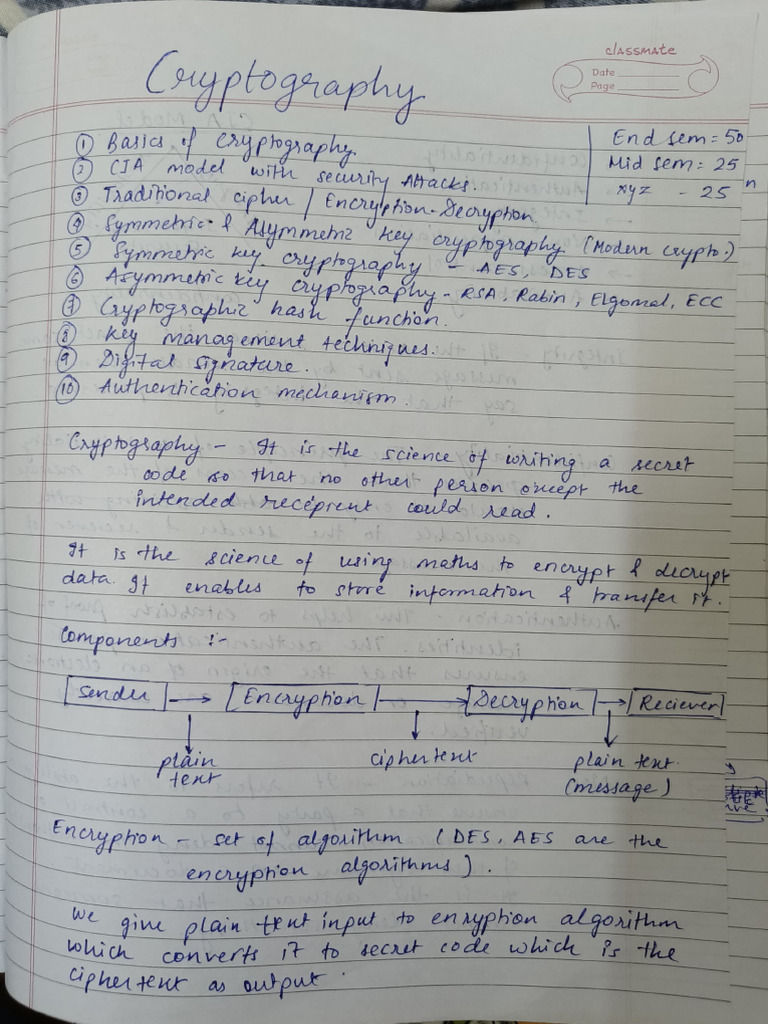 classmate
Date
Page
Cryptography
End sem = 50
Mid sem = 25
xyz - 25
① Basics of cryptography
② CIA model with security Attacks.
③ Traditional cipher / Encryption-Decryption
④ Symmetric & Asymmetric key cryptography (Modern crypto.)
⑤ Symmetric key cryptography - AES, DES
⑥ Asymmetric key cryptography - RSA, Rabin, Elgomal, ECC
⑦ Cryptographic hash function.
⑧ key management techniques.
⑨ Digital signature.
⑩ Authentication mechanism.
Cryptography - It is the science of writing a secret
code so that no other person except the
intended recepient could read.
It is the science of using maths to encrypt & decrypt
data. It enables to store information & transfer it.
Components :-
Sender → Encryption → Decryption → Reciever
plain text
ciphertext
plain text (message)
Encryption - set of algorithm (DES, AES are the
encryption algorithms).
we give plain text input to enryption algorithm
which converts it to secret code which is the
ciphertext as output.